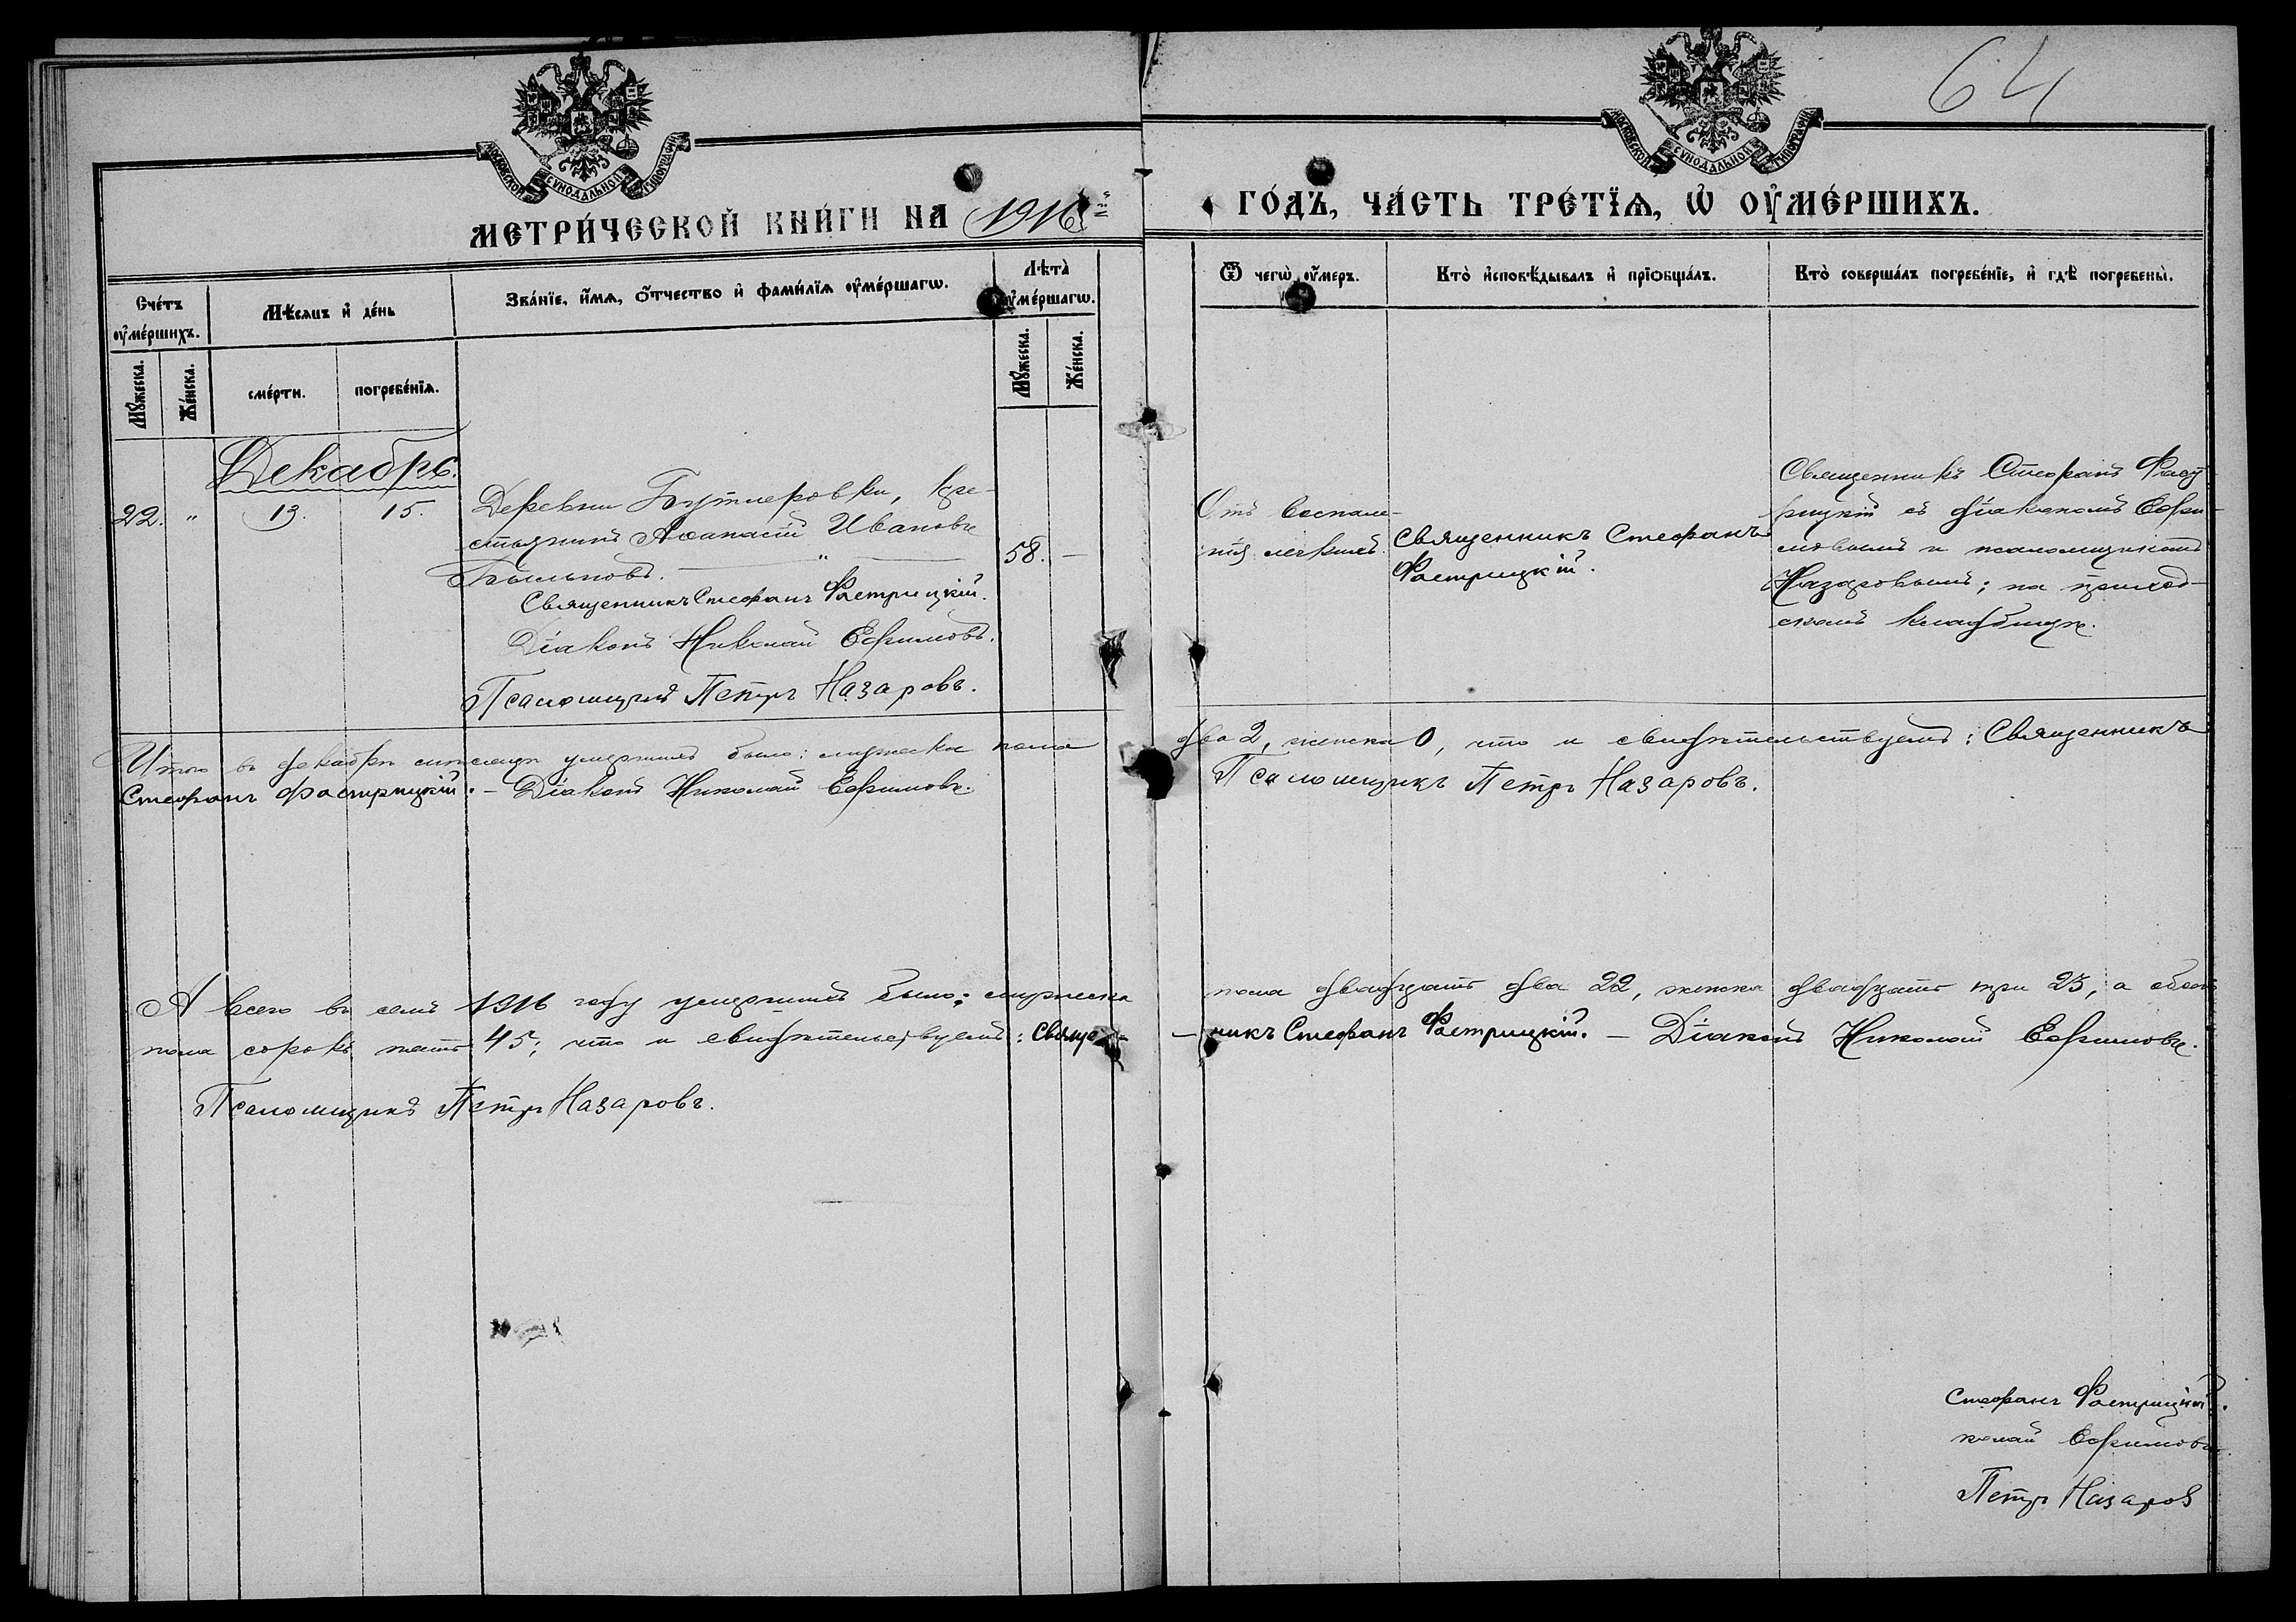 64
МОСКОВСКОЙ СѴНОДАЛЬНОЙ ТИПОГРАФІИ
МОСКОВСКОЙ СѴНОДАЛЬНОЙ ТИПОГРАФІИ
МЕТРИ́ЧЕСКОЙ КНИ́ГИ НА 1916й
ГО́ДЪ, ЧА́СТЬ ТРЕ́ТЇѦ, Ѡ҆ ОУ҆МЕ́РШИХЪ.
Сче́тъ оу҆ме́ршихъ.
Мѣ́сѧцъ и҆ де́нь
Зва́нїе, и҆́мѧ, ѻ҆́тчество и҆ фами́лїѧ оу҆ме́ршагѡ.
Лѣ́та оу҆ме́ршагѡ.
Ѿ чегѡ̀ оу҆́меръ.
Кто̀ и҆сповѣ́дывалъ и҆ прїѡбща́лъ.
Кто̀ соверша́лъ погребе́нїе, и҆ гдѣ̀ погребены̀.
Мꙋ́жеска.
Же́нска.
сме́рти.
погребе́нїѧ.
Мꙋ́жеска.
Же́нска.
Декабрь.
22. " 13. 15.
Деревни Бутлеровки, кре-
стьянинъ Аѳанасій Ивановъ
Священникъ Стефанъ Фастрицкій.
Діаконъ Николай Ефимовъ.
Псаломщикъ Петръ Назаровъ.
58. —
Отъ воспале-
нія легкихъ.
Священникъ Стефанъ
Фастрицкій.
Священникъ Стефанъ Фаст-
рицкій съ діакономъ Ефи-
мовымъ и псаломщикомъ
Назаровымъ; на приход-
скомъ кладбищѣ.
Итого въ декабрѣ мѣсяцѣ умершихъ было: мужеска пола два 2, женска 0, что и свидѣтельствуемъ: Священникъ
Стефанъ Фастрицкій. — Діаконъ Николай Ефимовъ. Псаломщикъ Петръ Назаровъ.
А всего въ семъ 1916 году умершихъ было: мужеска пола двадцать два 22, женска двадцать три 23, а обоего
пола сорокъ пять 45; что и свидѣтельствуемъ: Священ-никъ Стефанъ Фастрицкій. — Діаконъ Николай Ефимовъ.
Псаломщикъ Петръ Назаровъ.
Стефанъ Фастрицкій.
колай Ефимовъ
Петръ Назаров